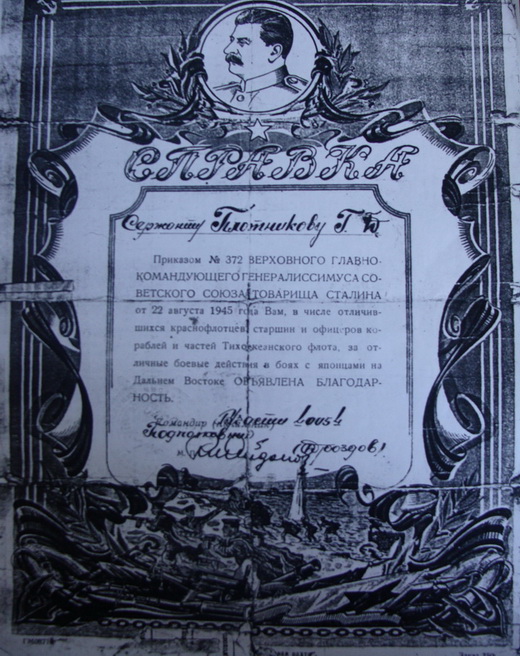 СПРАВКА
Сержанту Плотникову Г.
Приказом № 372 ВЕРХОВНОГО ГЛАВНО-
КОМАНДУЮЩЕГО ГЕНЕРАЛИССИМУСА СО-
ВЕТСКОГО СОЮЗА ТОВАРИЩА СТАЛИНА
от 22 августа 1945 года Вам, в числе отличив-
шихся краснофлотцев, старшин и офицеров ко-
раблей и частей Тихоокеанского флота, за от-
личные боевые действия в боях с японцами на
Дальнем Востоке ОБЪЯВЛЕНА БЛАГОДАР-
НОСТЬ.
Командир части
Подполковник